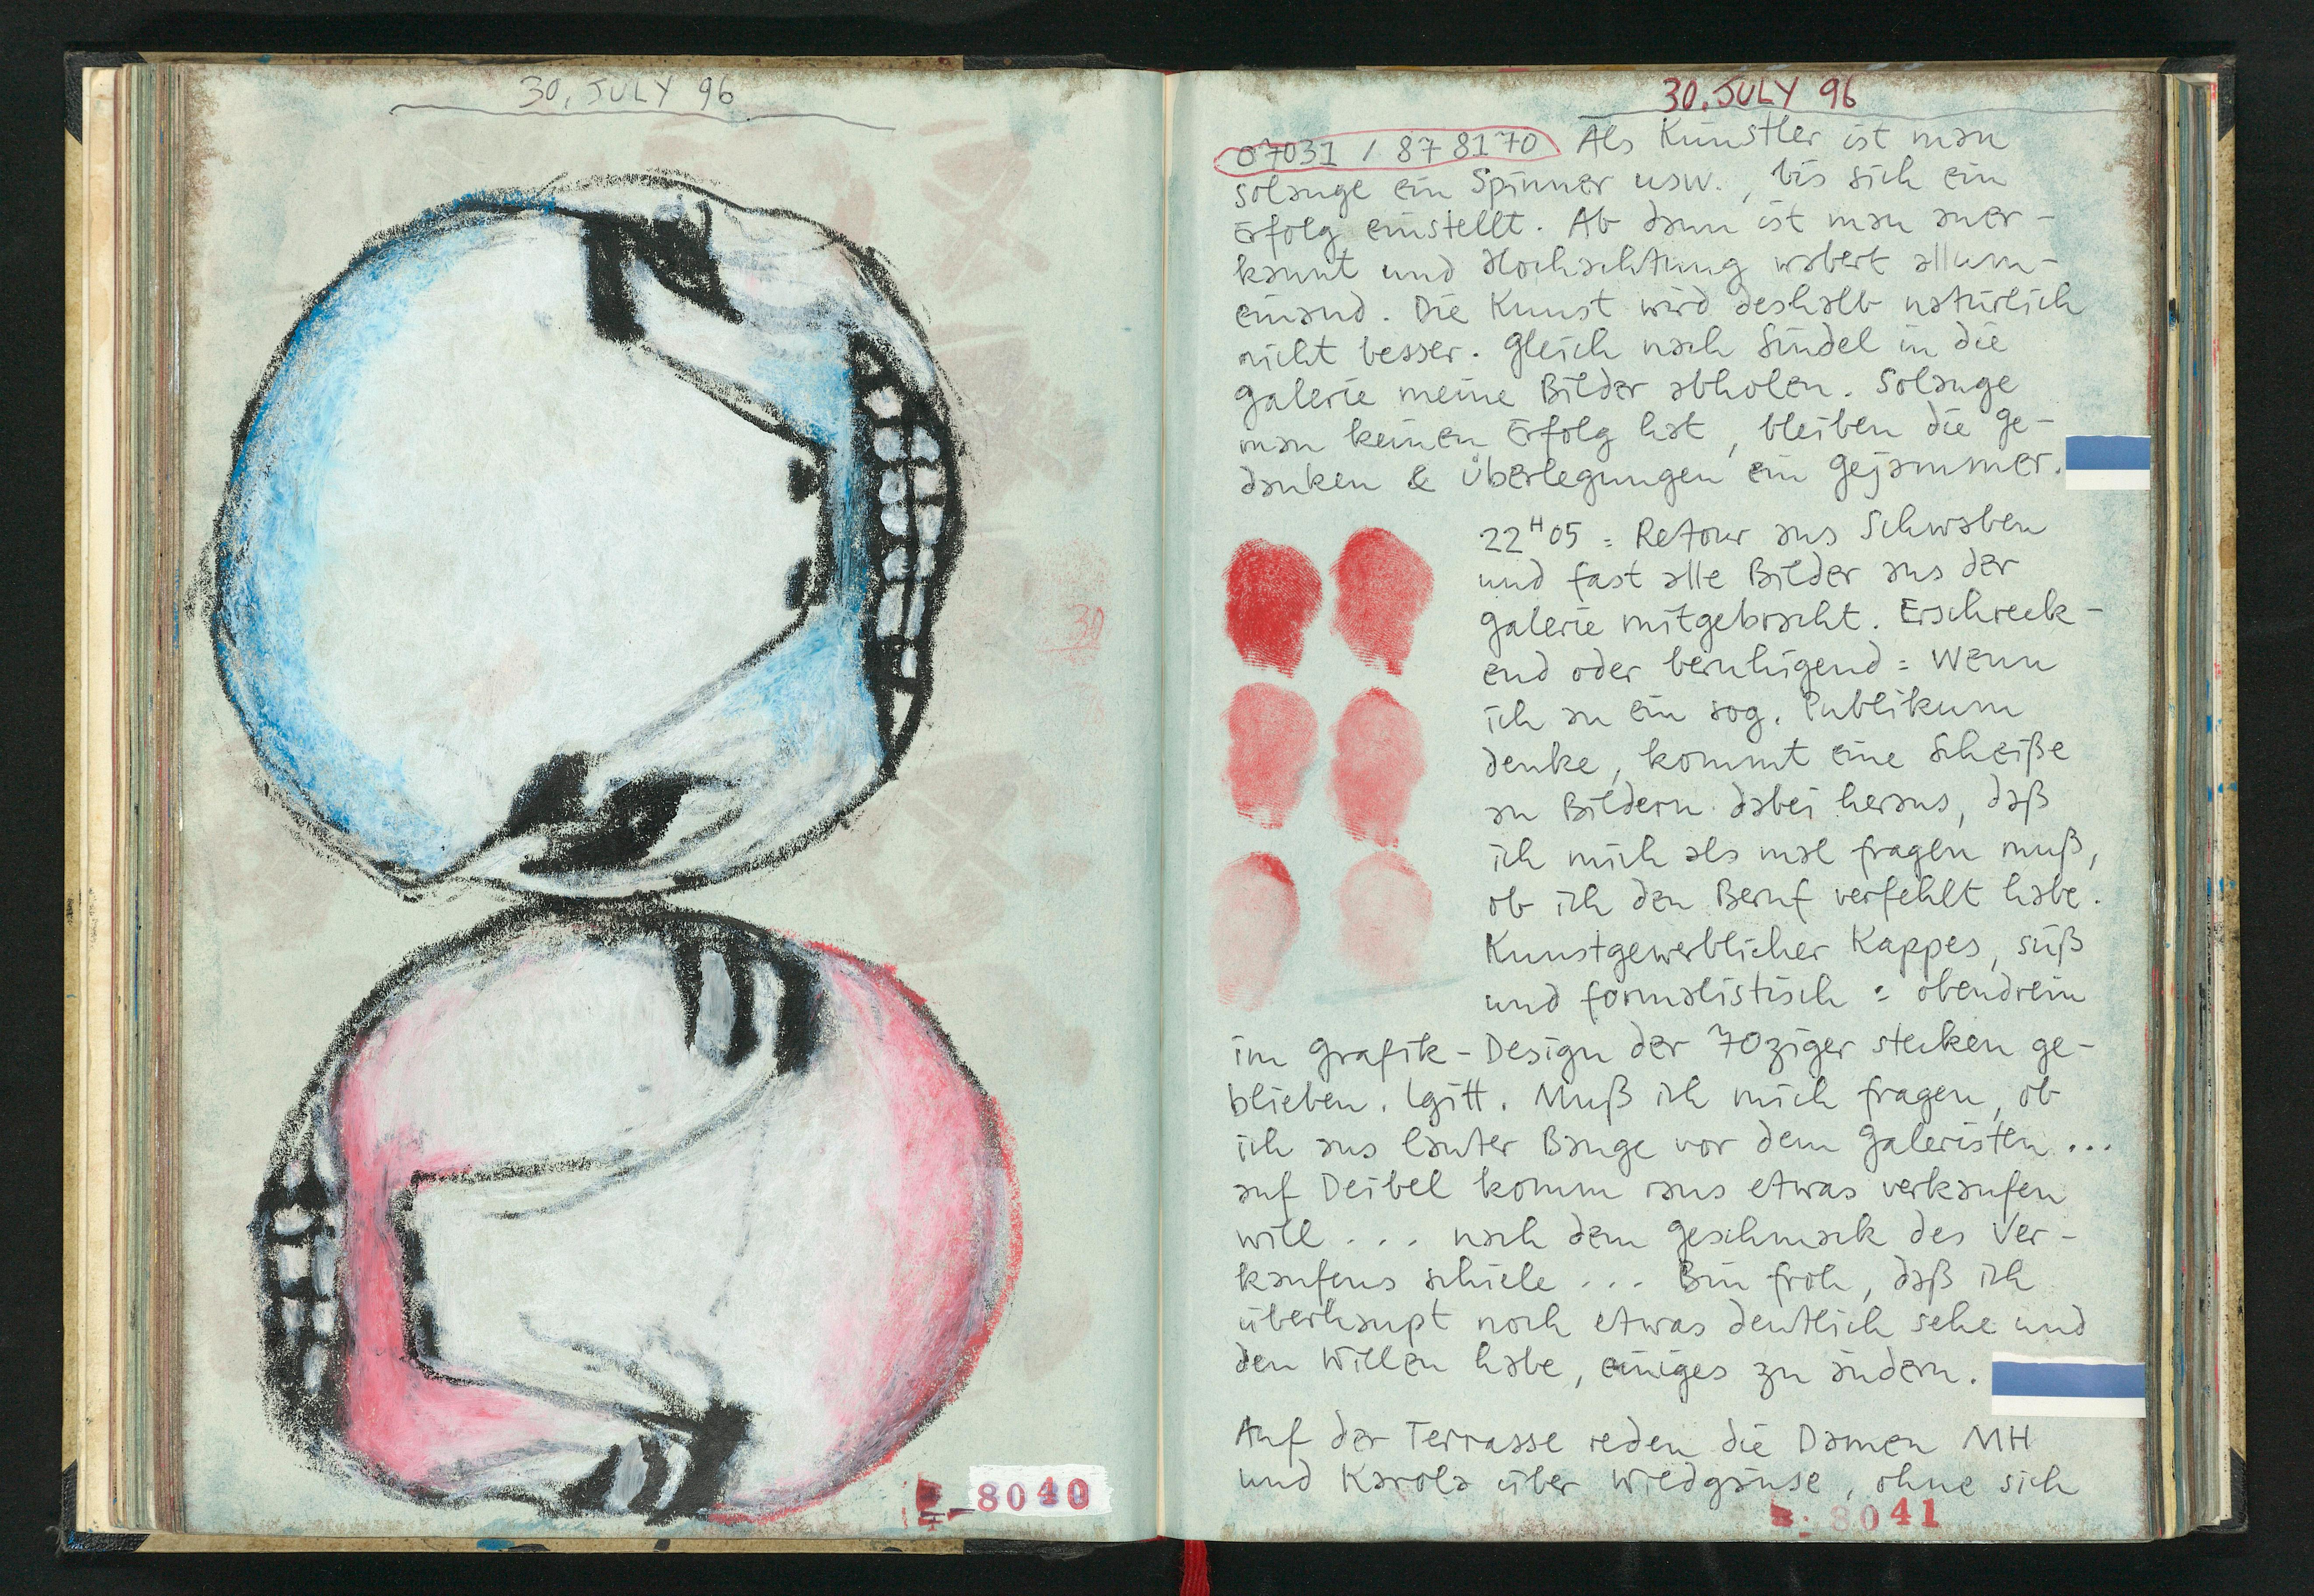 30. JULY 96
30
8040
30. JULY 96
07031 / 87 81 70 Als Künstler ist man
solange ein Spinner usw., bis sich ein
Erfolg einstellt. Ab dann ist man aner-
kannt und Hochachtung wabert allum-
einand. Die Kunst wird deshalb natürlich
nicht besser. Gleich nach Sindel in die
Galerie meine Bilder abholen. Solange
man keinen Erfolg hat, bleiben die Ge-
danken & Überlegungen ein Gejammer.
22H05 = Retour aus Schwaben
und fast alle Bilder aus der
Galerie mitgebracht. Erschreck-
end oder beruhigend = Wenn
ich an ein sog. Publikum
denke, kommt eine Scheiße
an Bildern dabei heraus, daß
ich mich als mal fragen muß,
ob ich den Beruf verfehlt habe.
Kunstgewerblicher Kappes, süß
und formalistisch = obendrein
im Grafik-Design der 70ziger stecken ge-
blieben. Igitt. Muß ich mich fragen, ob
ich aus lauter Bange vor dem Galeristen ...
auf Deibel komm raus etwas verkaufen
will ... nach dem Geschmack des Ver-
kaufens schiele ... Bin froh, daß ich
überhaupt noch etwas deutlich sehe und
den Willen habe, einiges zu ändern.
Auf der Terrasse reden die Damen MH
und Karola über Wildgänse, ohne sich
8041